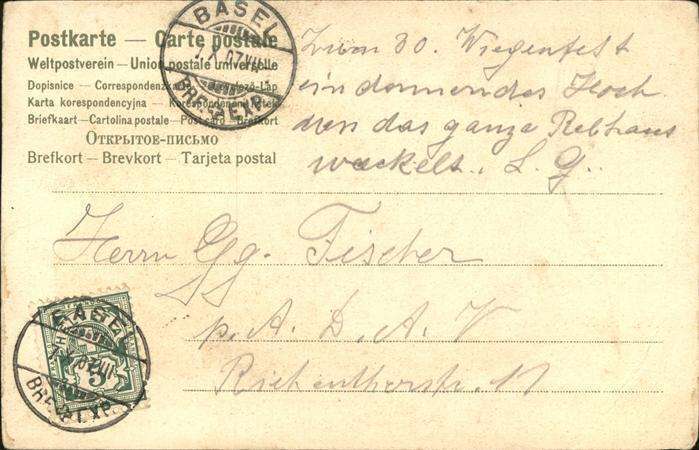 Postkarte — Carte postale
Weltpostverein — Union postale universelle
Dopisnice — Correspondenzkarte — Levelező-Lap
Karta korespondencyjna — Korespondenční lístek
Briefkaart — Cartolina postale — Post card — Brefkort
Открытое-письмо
Brefkort — Brevkort — Tarjeta postal
BASEL
BRF. EXP.
Zum 30. Wiegenfest
ein donnerndes Hoch
das ganze Rebhaus
wackelt. L. G.
Herrn Gg. Fischer
p. A. D. A. V
BASEL
BRF. EXP.
5